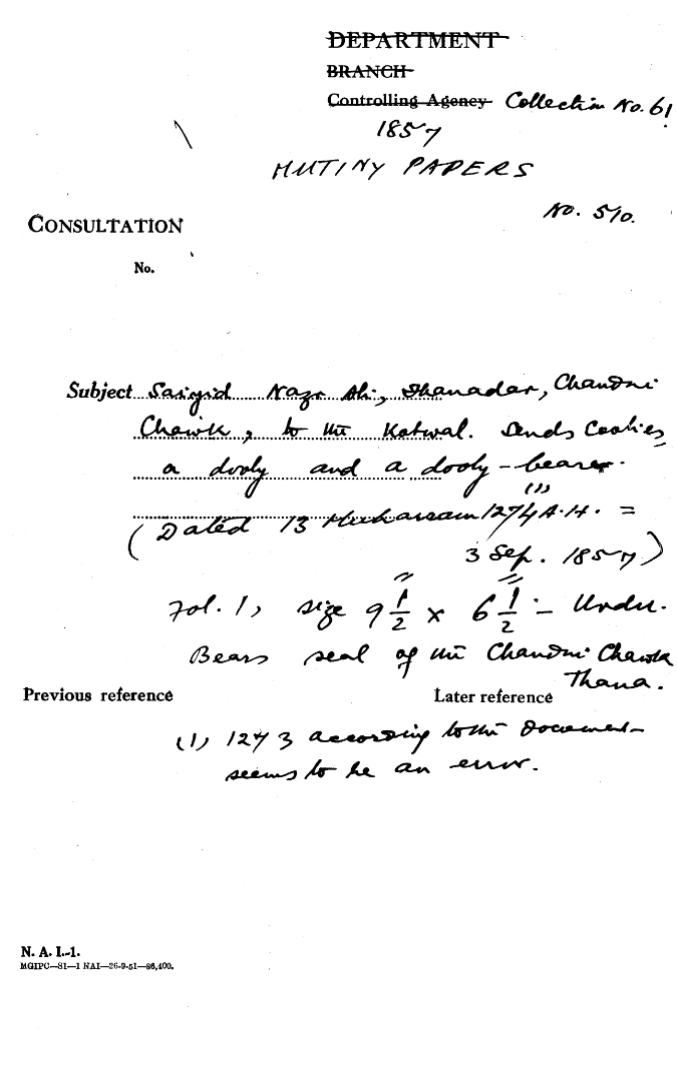 DEPARTMENT
BRANCH
Controlling Agency Collection No. 61
1857
MUTINY PAPERS
No. 510.
CONSULTATION
No.
Subject Saiyid Nazr Ali, Thanadar, Chandni
Chawk, to the Kotwal. Sends Coolies,
a dooly and a dooly-bearer.
(1)
(Dated 13 Muharram 1274 A.H. =
3 Sep. 1857)
Fol. 1, size 9 1/2" x 6 1/2" - Urdu.
Bears seal of the Chandni Chawk
Thana.
Previous reference Later reference
(1) 1273 according to the document
seems to be an error.
N. A. I.-1.
MGIPC—S1—1 NAI—26-9-51—86,400.